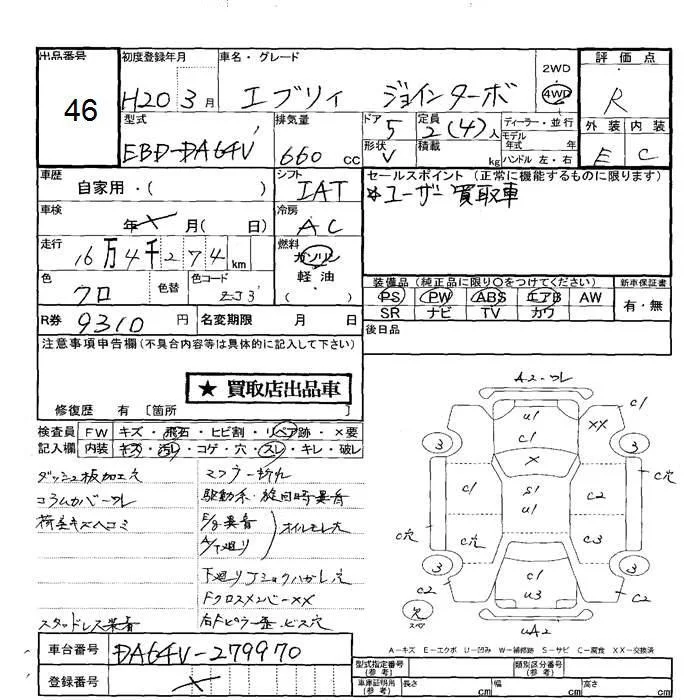 出品番号 初度登録年月 車名・グレード 2WD 評価点
46 H20 3月 エブリィ ジョインターボ 4WD R
型式 排気量 ドア 定員 ディーラー・並行 外装 内装
EBD-DA64V 660 cc 5 2(4)人 モデル年式 年 E C
形状 V 積載 kg ハンドル 左・右
車歴 自家用・( ) シフト IAT セールスポイント (正常に機能するものに限ります)
※ユーザー買取車
車検 年 X 月( 日) 冷房 AC
走行 16万4千274km 燃料 ガソリン 軽油 ( )
色 クロ 色替 色コード ZJ3
装備品 (純正品に限り〇をつけてください) 新車保証書
PS PW ABS エアB AW 有・無
SR ナビ TV カワ
R券 9310円 名変期限 月 日 後日品
注意事項申告欄 (不具合内容等は具体的に記入して下さい)
★ 買取店出品車
修復歴 有 [箇所 ]
検査員 FW キズ・飛石・ヒビ割・リペア跡・×要
記入欄 内装 キズ・汚レ・コゲ・穴・スレ・キレ・破レ
ダッシュ板加工穴 マフラー折れ
コラムカバーワレ 駆動系・旋回時異音
荷室キズヘコミ E/g異音 オイルモレ穴
A/T廻り
下廻りJショックハガレ穴
FクロスメンバーXX
スタッドレス装着 右Fピラー歪・ビス穴
A2・ワレ
u1 c1 XX c1
3 X 3
c1 S1 u1 c2 c穴
c穴 c穴 c3
3 c1 3
c2 u3 c2
穴 スペ uA2
A-キズ E-エクボ U-凹み W-補修跡 S-サビ C-腐食 XX-交換済
車台番号 DA64V-279970
型式指定番号 (参考) 類別区分番号 (参考)
登録番号 X
車庫証明用 (参考) 長さ cm 幅 cm 高さ cm